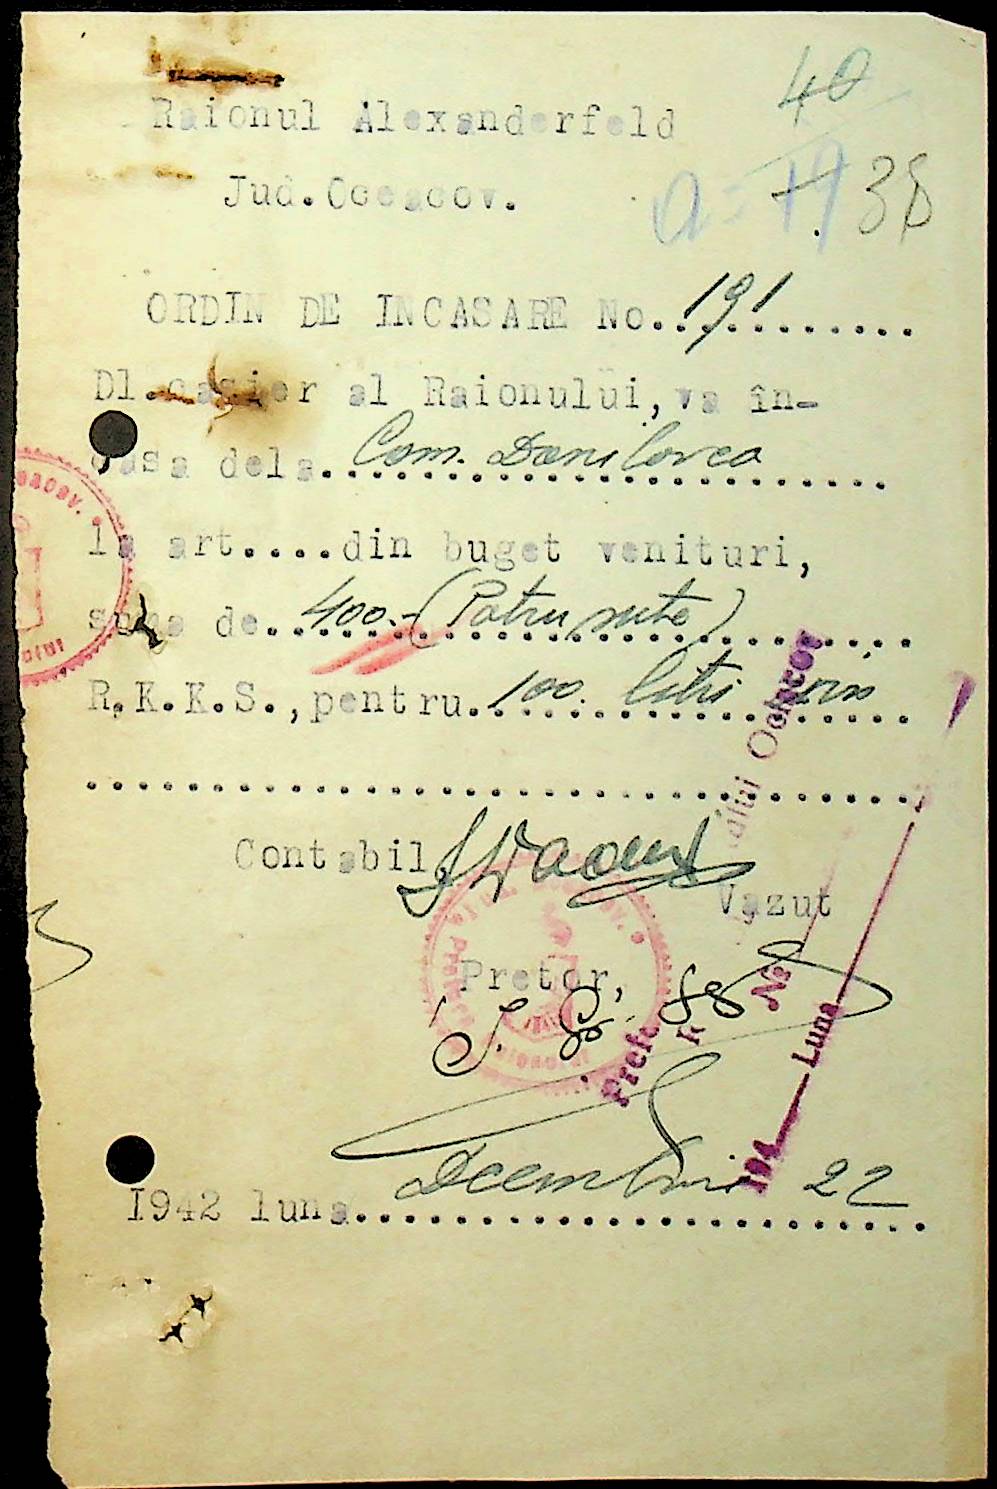 40
Raionul Alexanderfeld
38
Jud.Oceacov.
ORDIN DE INCASARE No. 191
Dl.casier al Raionului, va în-
casa dela. Com. Danilovca
la art.....din buget venituri,
suma de. 400.- (Patru sute)
R.K.K.S., pentru. 100. litri vin
Contabil,
Vazut
Pretor,
No
Luna
194
1942 luna Decembrie 22